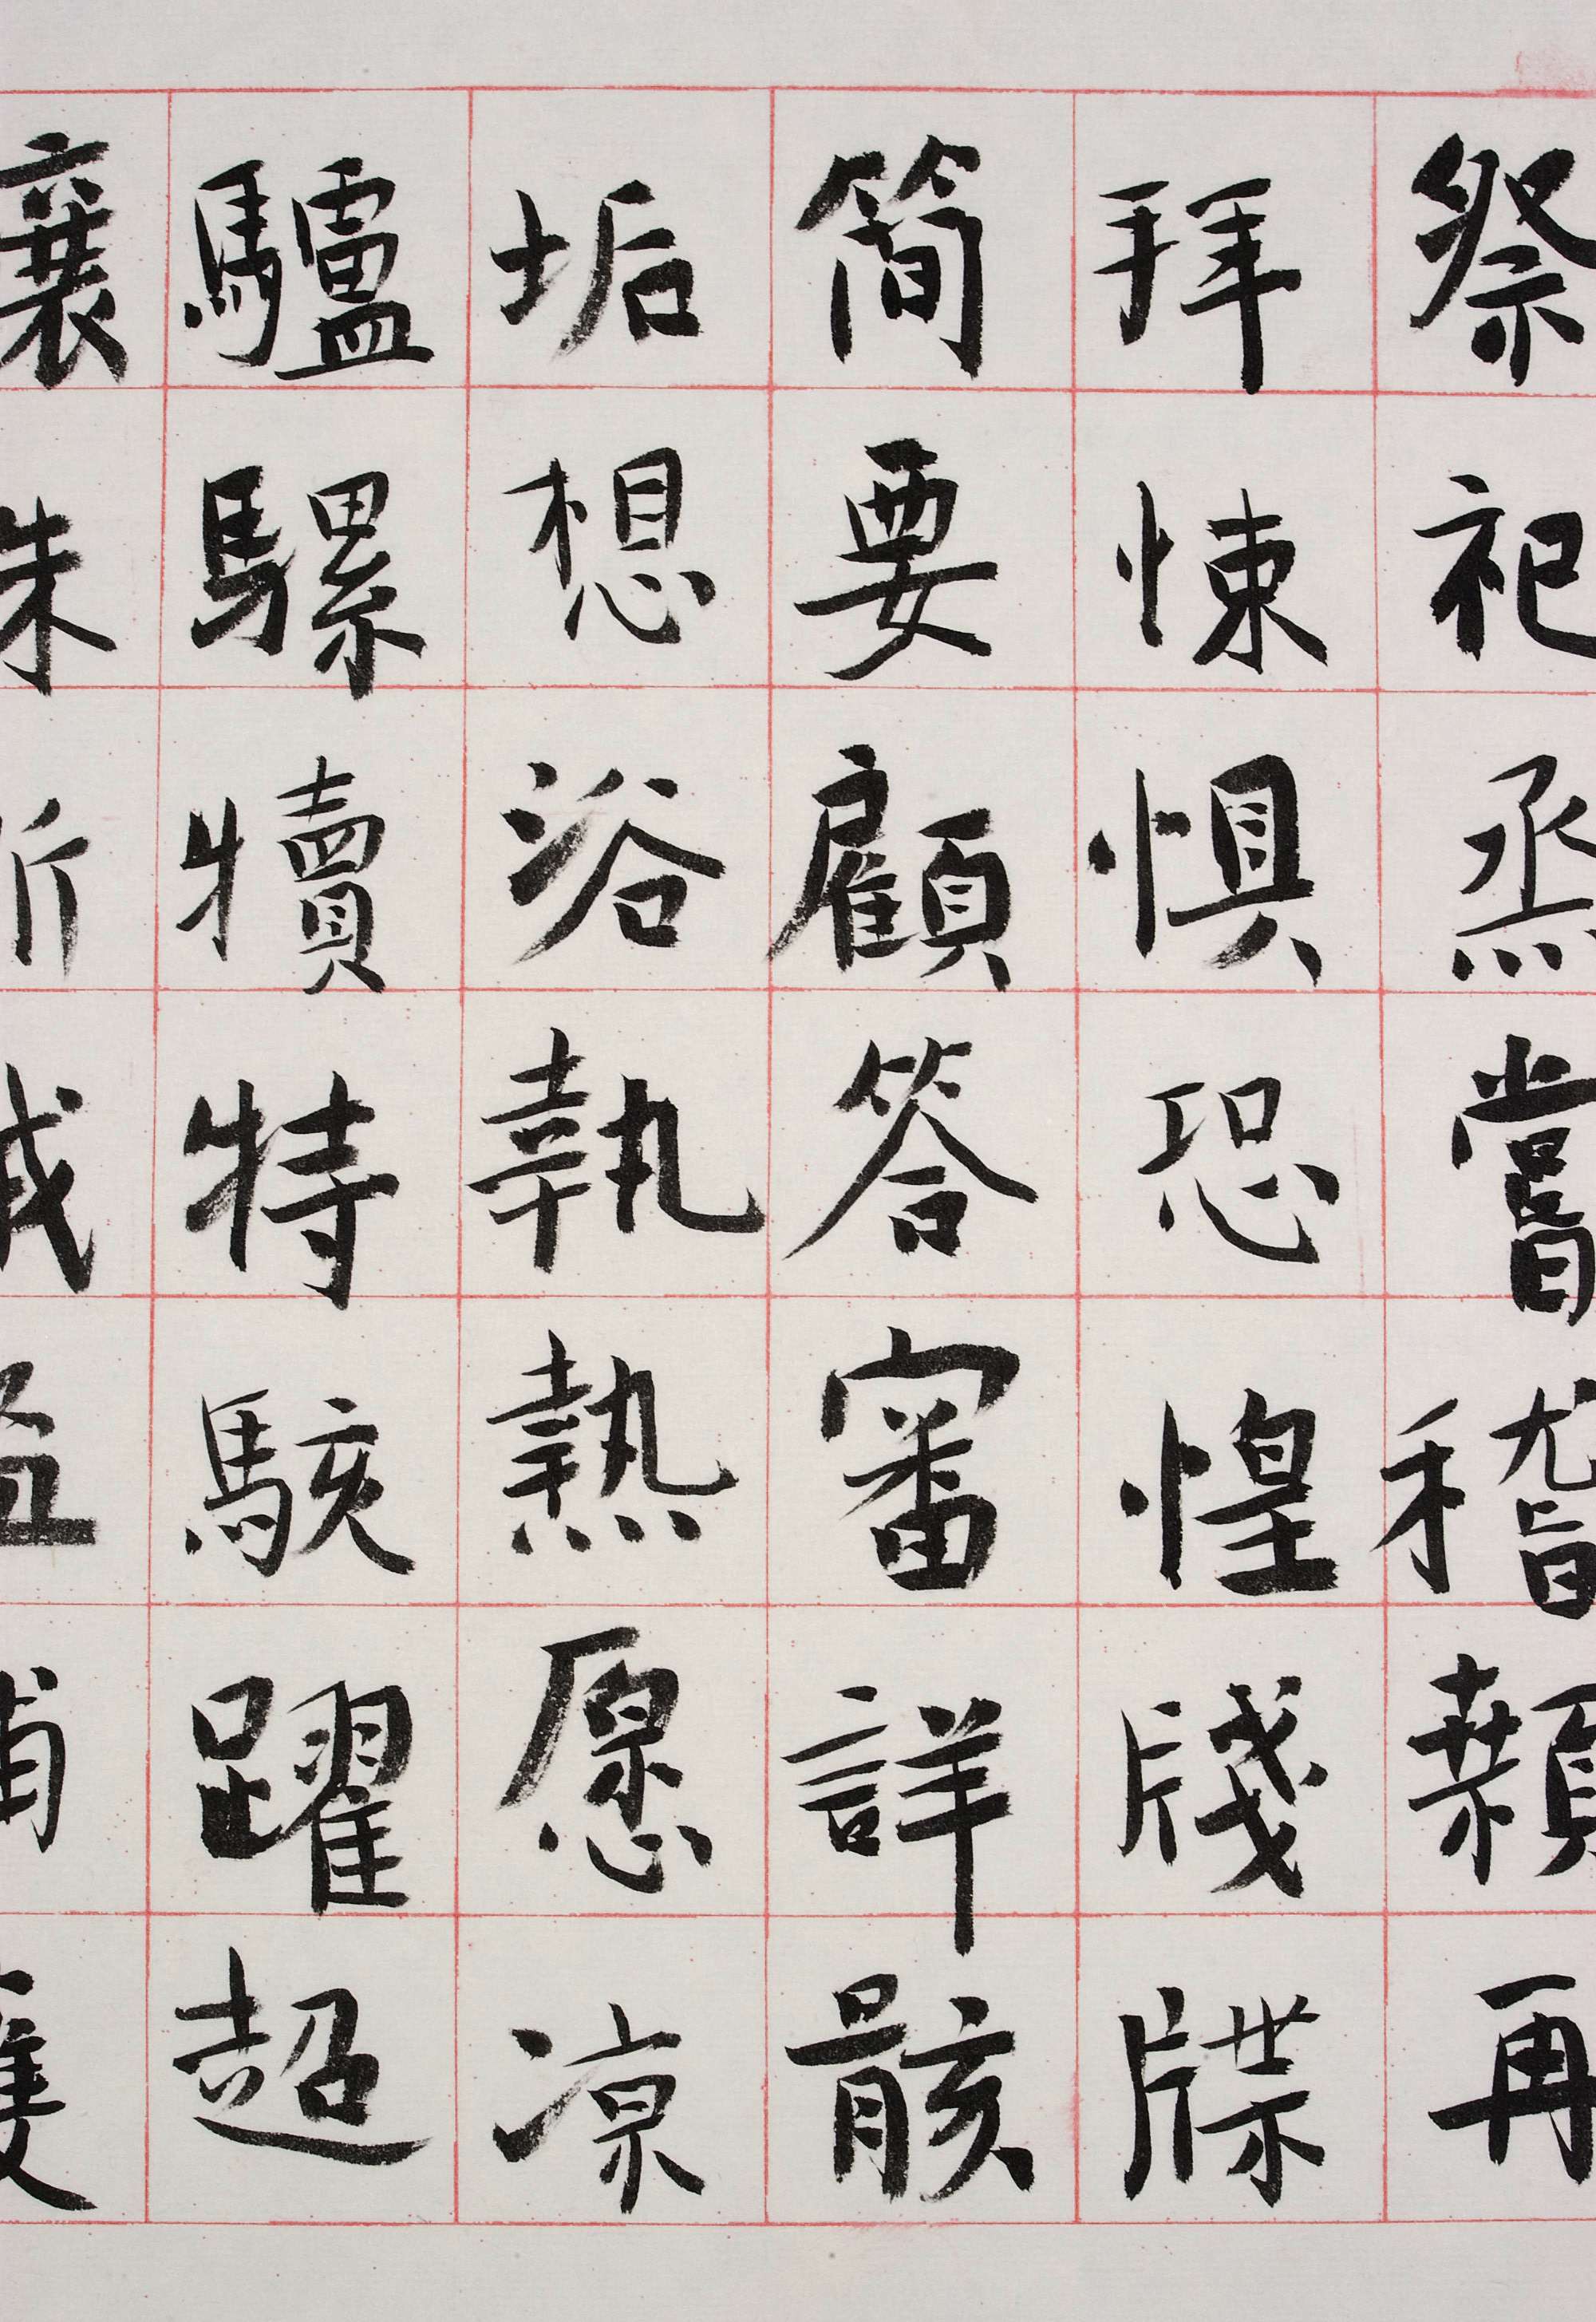 祭祀烝嘗稽顙再
拜悚懼恐惶牋牒
簡要顧答審詳骸
垢想浴執熱愿凉
驢騾犢特駭躍超
驤誅斬賊盜捕獲